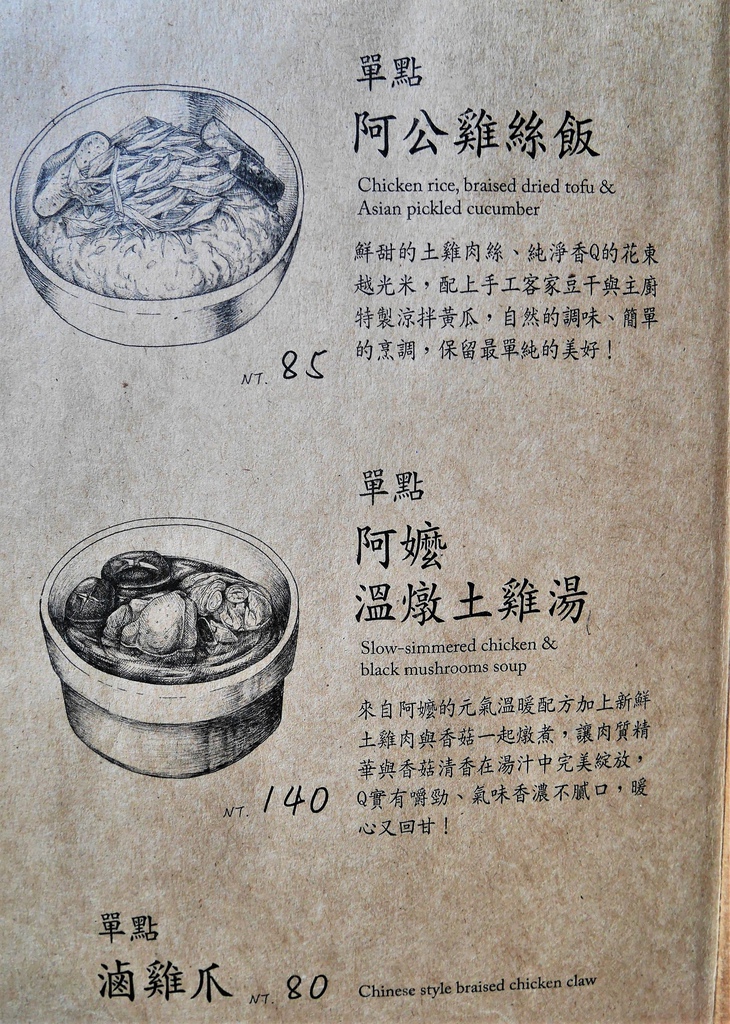 單點
阿公雞絲飯
Chicken rice, braised dried tofu &
Asian pickled cucumber
鮮甜的土雞肉絲、純淨香Q的花東
越光米，配上手工客家豆干與主廚
特製涼拌黃瓜，自然的調味、簡單
的烹調，保留最單純的美好！
NT. 85
單點
阿嬤
溫燉土雞湯
Slow-simmered chicken &
black mushrooms soup
來自阿嬤的元氣溫暖配方加上新鮮
土雞肉與香菇一起燉煮，讓肉質精
華與香菇清香在湯汁中完美綻放，
Q實有嚼勁、氣味香濃不膩口，暖
心又回甘！
NT. 140
單點
滷雞爪 NT. 80 Chinese style braised chicken claw